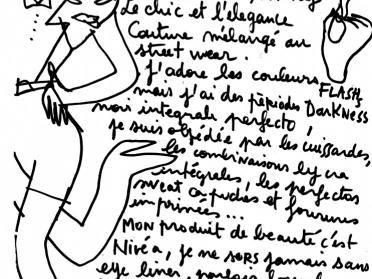 Le chic et l'elegance
Couture mélangé au
street wear.
J'adore les couleurs FLASHs
mais j'ai des périodes DarkNess
noir integrale perfecto !
je suis obsédée par les cuissardes,
les combinaisons lycra
intégrales, les perfectos
sweat capuches et fourrures
imprimées...
Mon produit de beauté c'est
Nivéa, je ne sors jamais sans
eye liner,